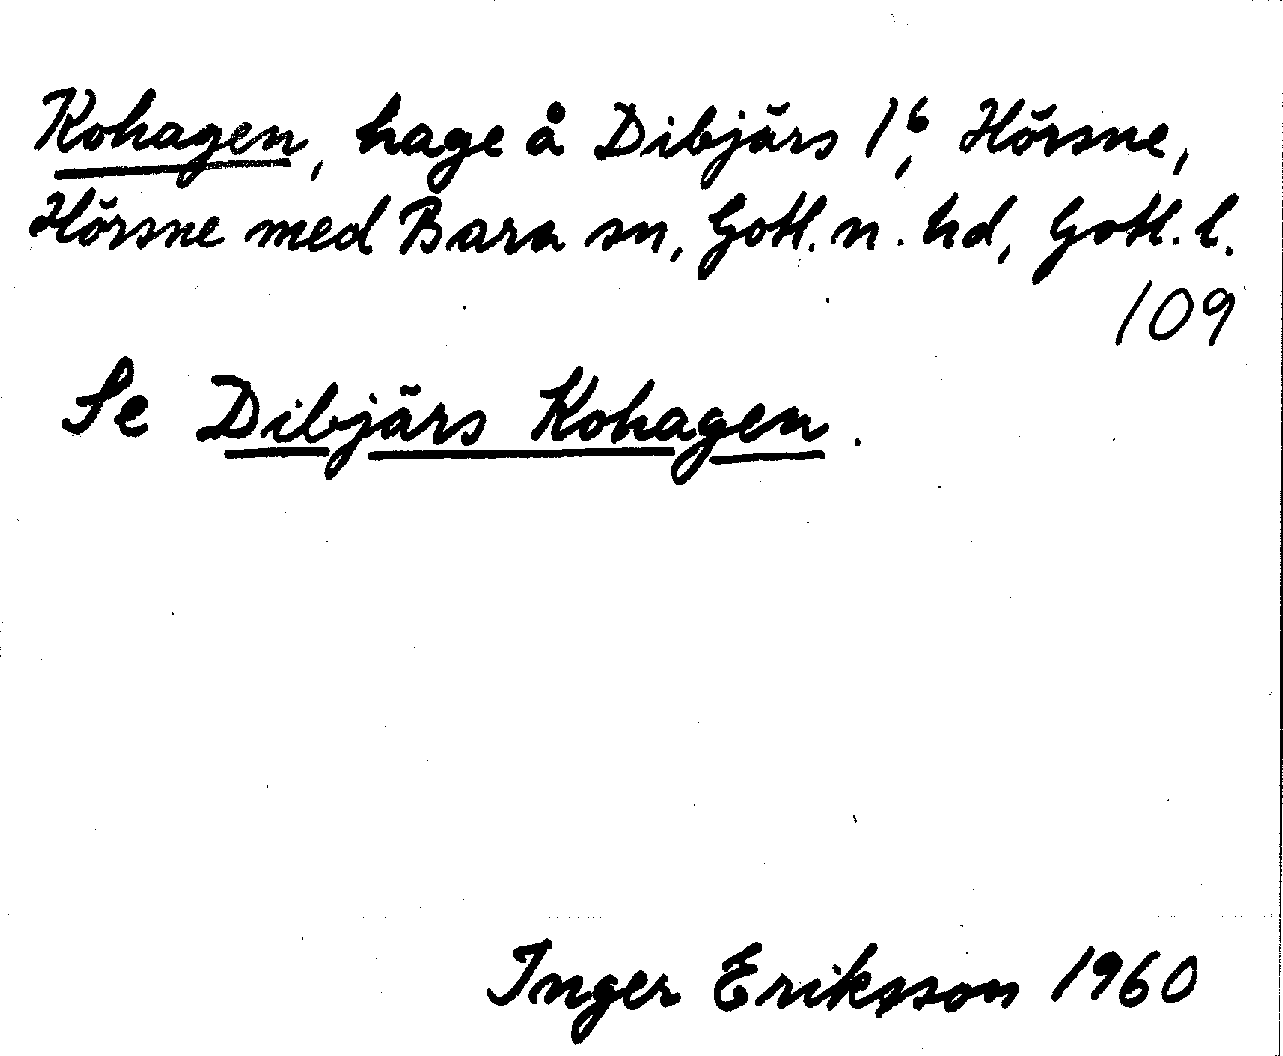 Kohagen, hage å Dibjärs 1⁶, Hörsne,
Hörsne med Bara sn, Gotl. n. hd, Gotl. l.
109
Se Dibjärs Kohagen.
Inger Eriksson 1960